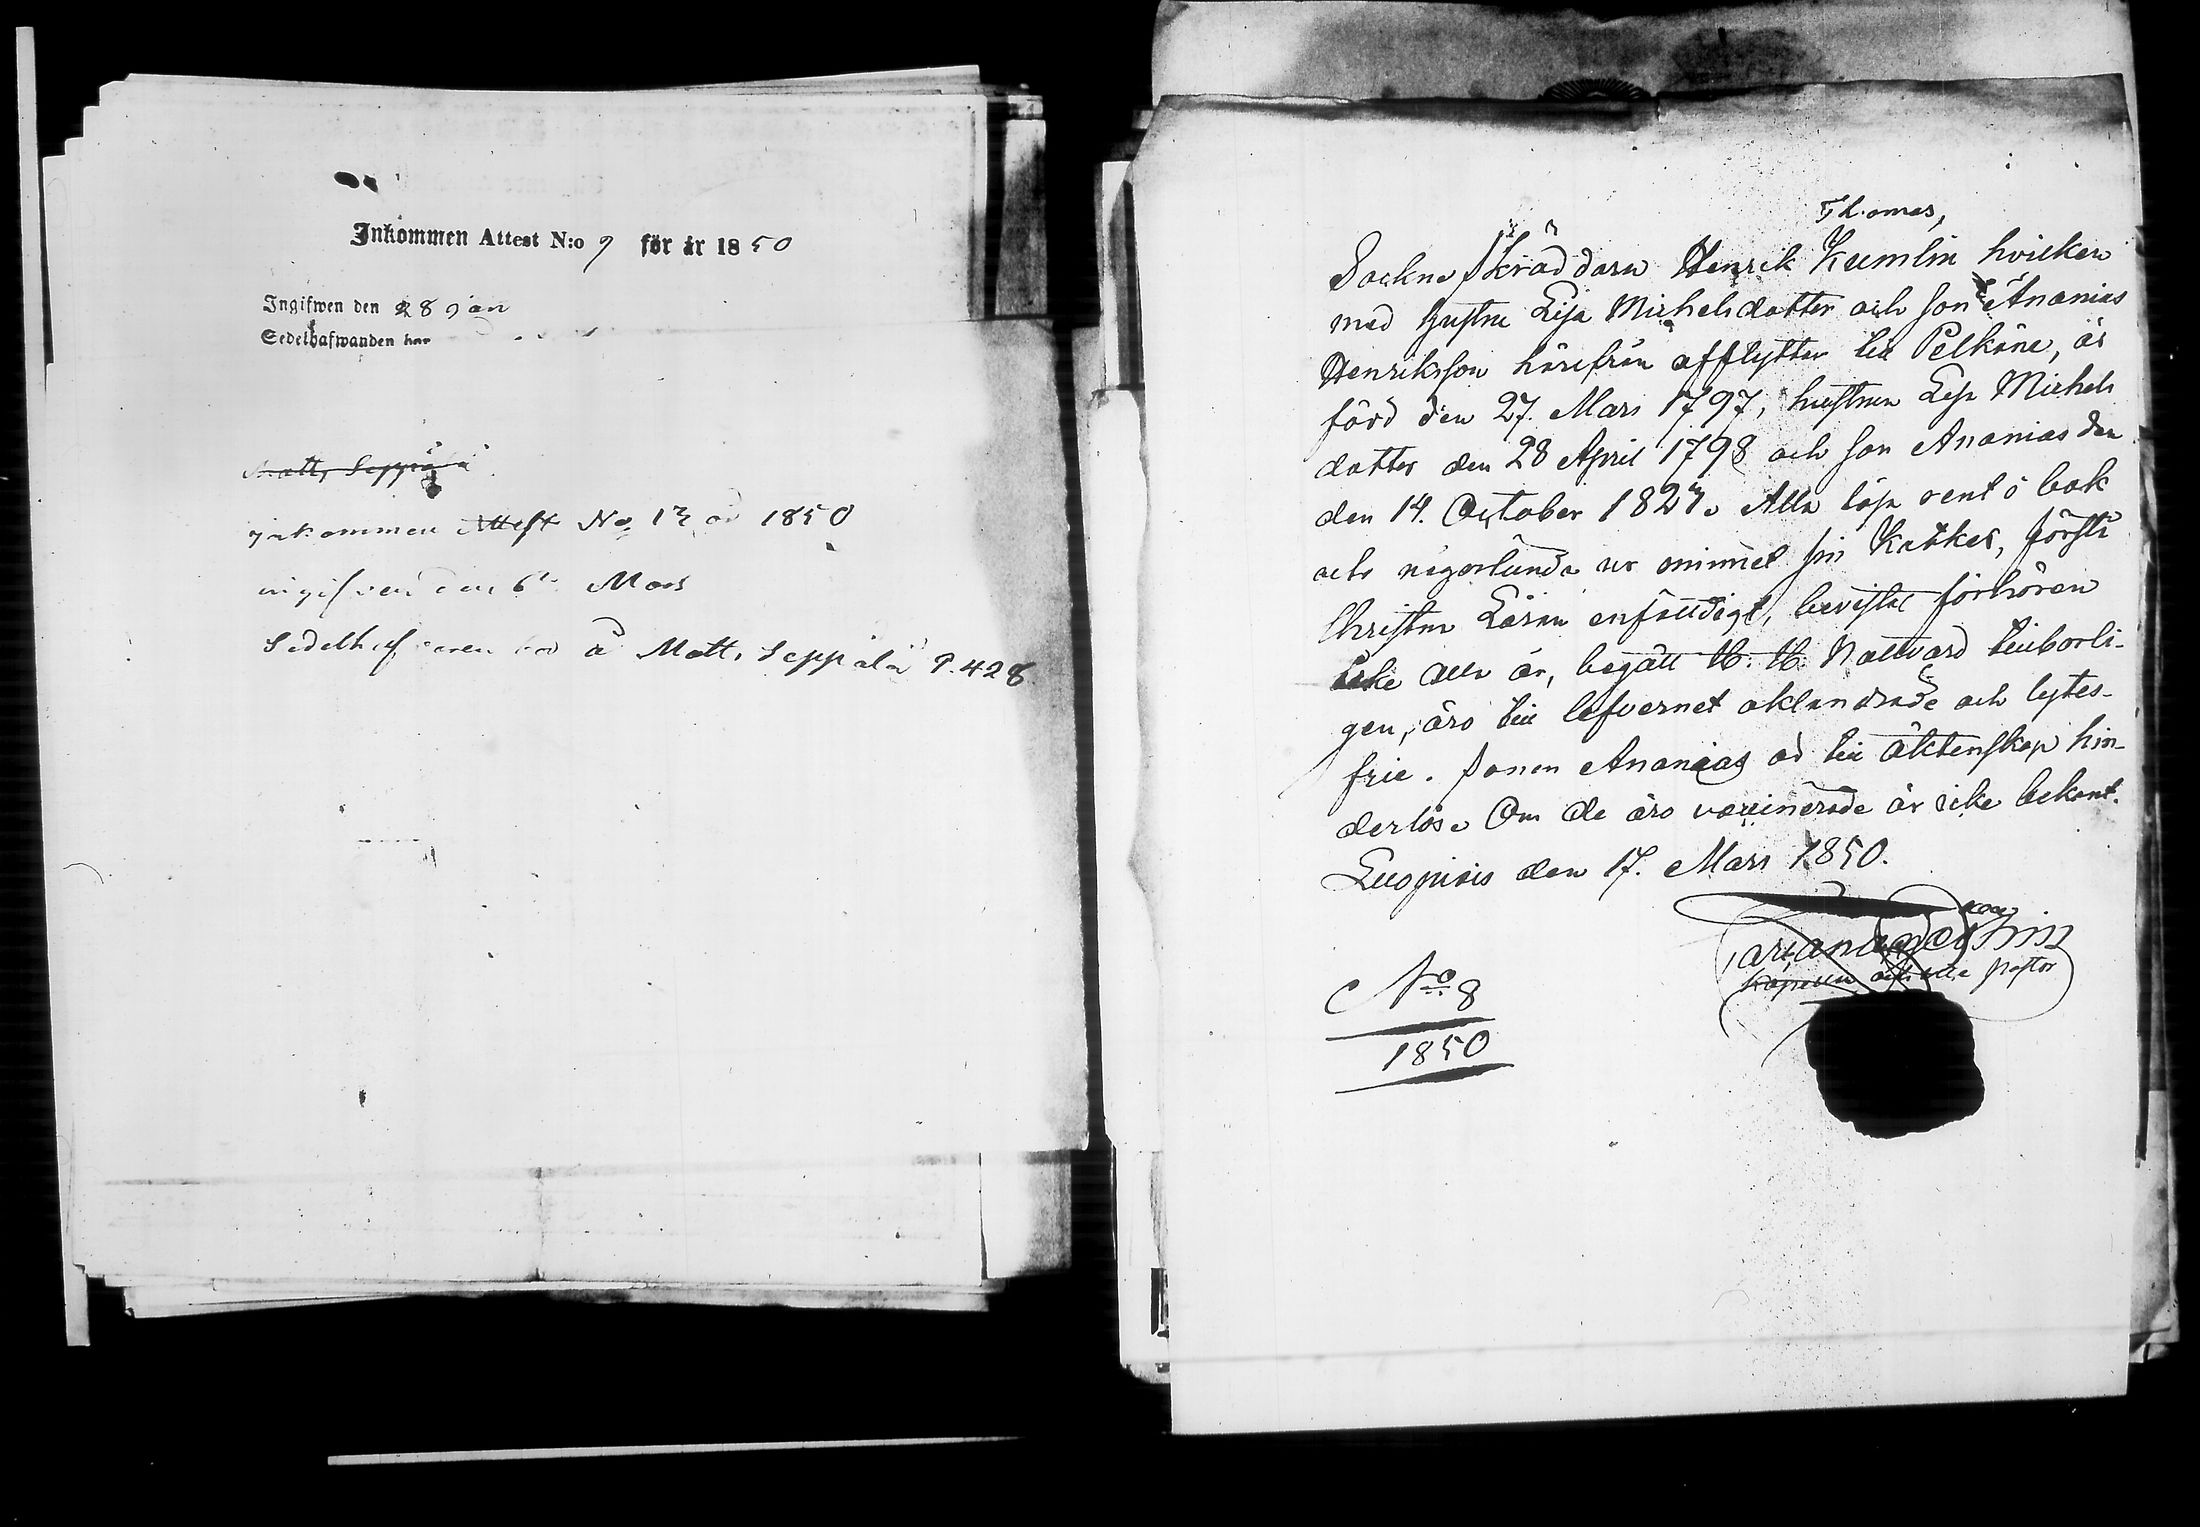 Inkommen Attest N:o 9 för år 1850
Ingifwen den 28 Jan
Sedelhafwanden har
Matts Seppälä
Inkommen Attest No 13 år 1850
ingifven den 6 Mars
Sedelhafvaren bor å Matts Seppälä P. 428
Thomas,
Sockne Skräddaren Henrik Kumlin hvilken
med hustru Lisa Michelsdotter och Son Ananias
Henriksson härifrån afflytter till Pelkäne, är
född den 27. Mars 1797, hustrun Lisa Michels
dotter den 28 April 1798 och Son Ananias den
den 14. October 1827. Alla läsa rent i bok
och någorlunda ur minnet sin Katkes, förstå
Christna Läran enfaldigt, bevistat förhören
icke alla år, begått H. H. Nattvard tillbörli-
gen, äro till lefvernet oklandrade och lytes-
frie. Sonen Ananias är till äktenskap hin-
derlös. Om de äro vaccinerade är icke bekant.
Luopiois den 17. Mars 1850.
Kapellan Pastor
No 8
1850